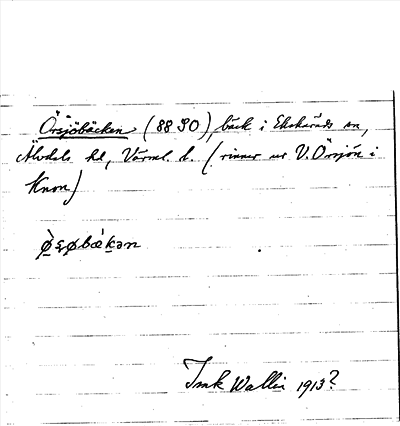 Örsjöbäcken (88 SO), bäck i Ekshärads sn,
Älvdals hd, Värml. l. (rinner ur V. Örsjön i
Knon)
ø̀ȿøbækən
Imk Wallin 1913?